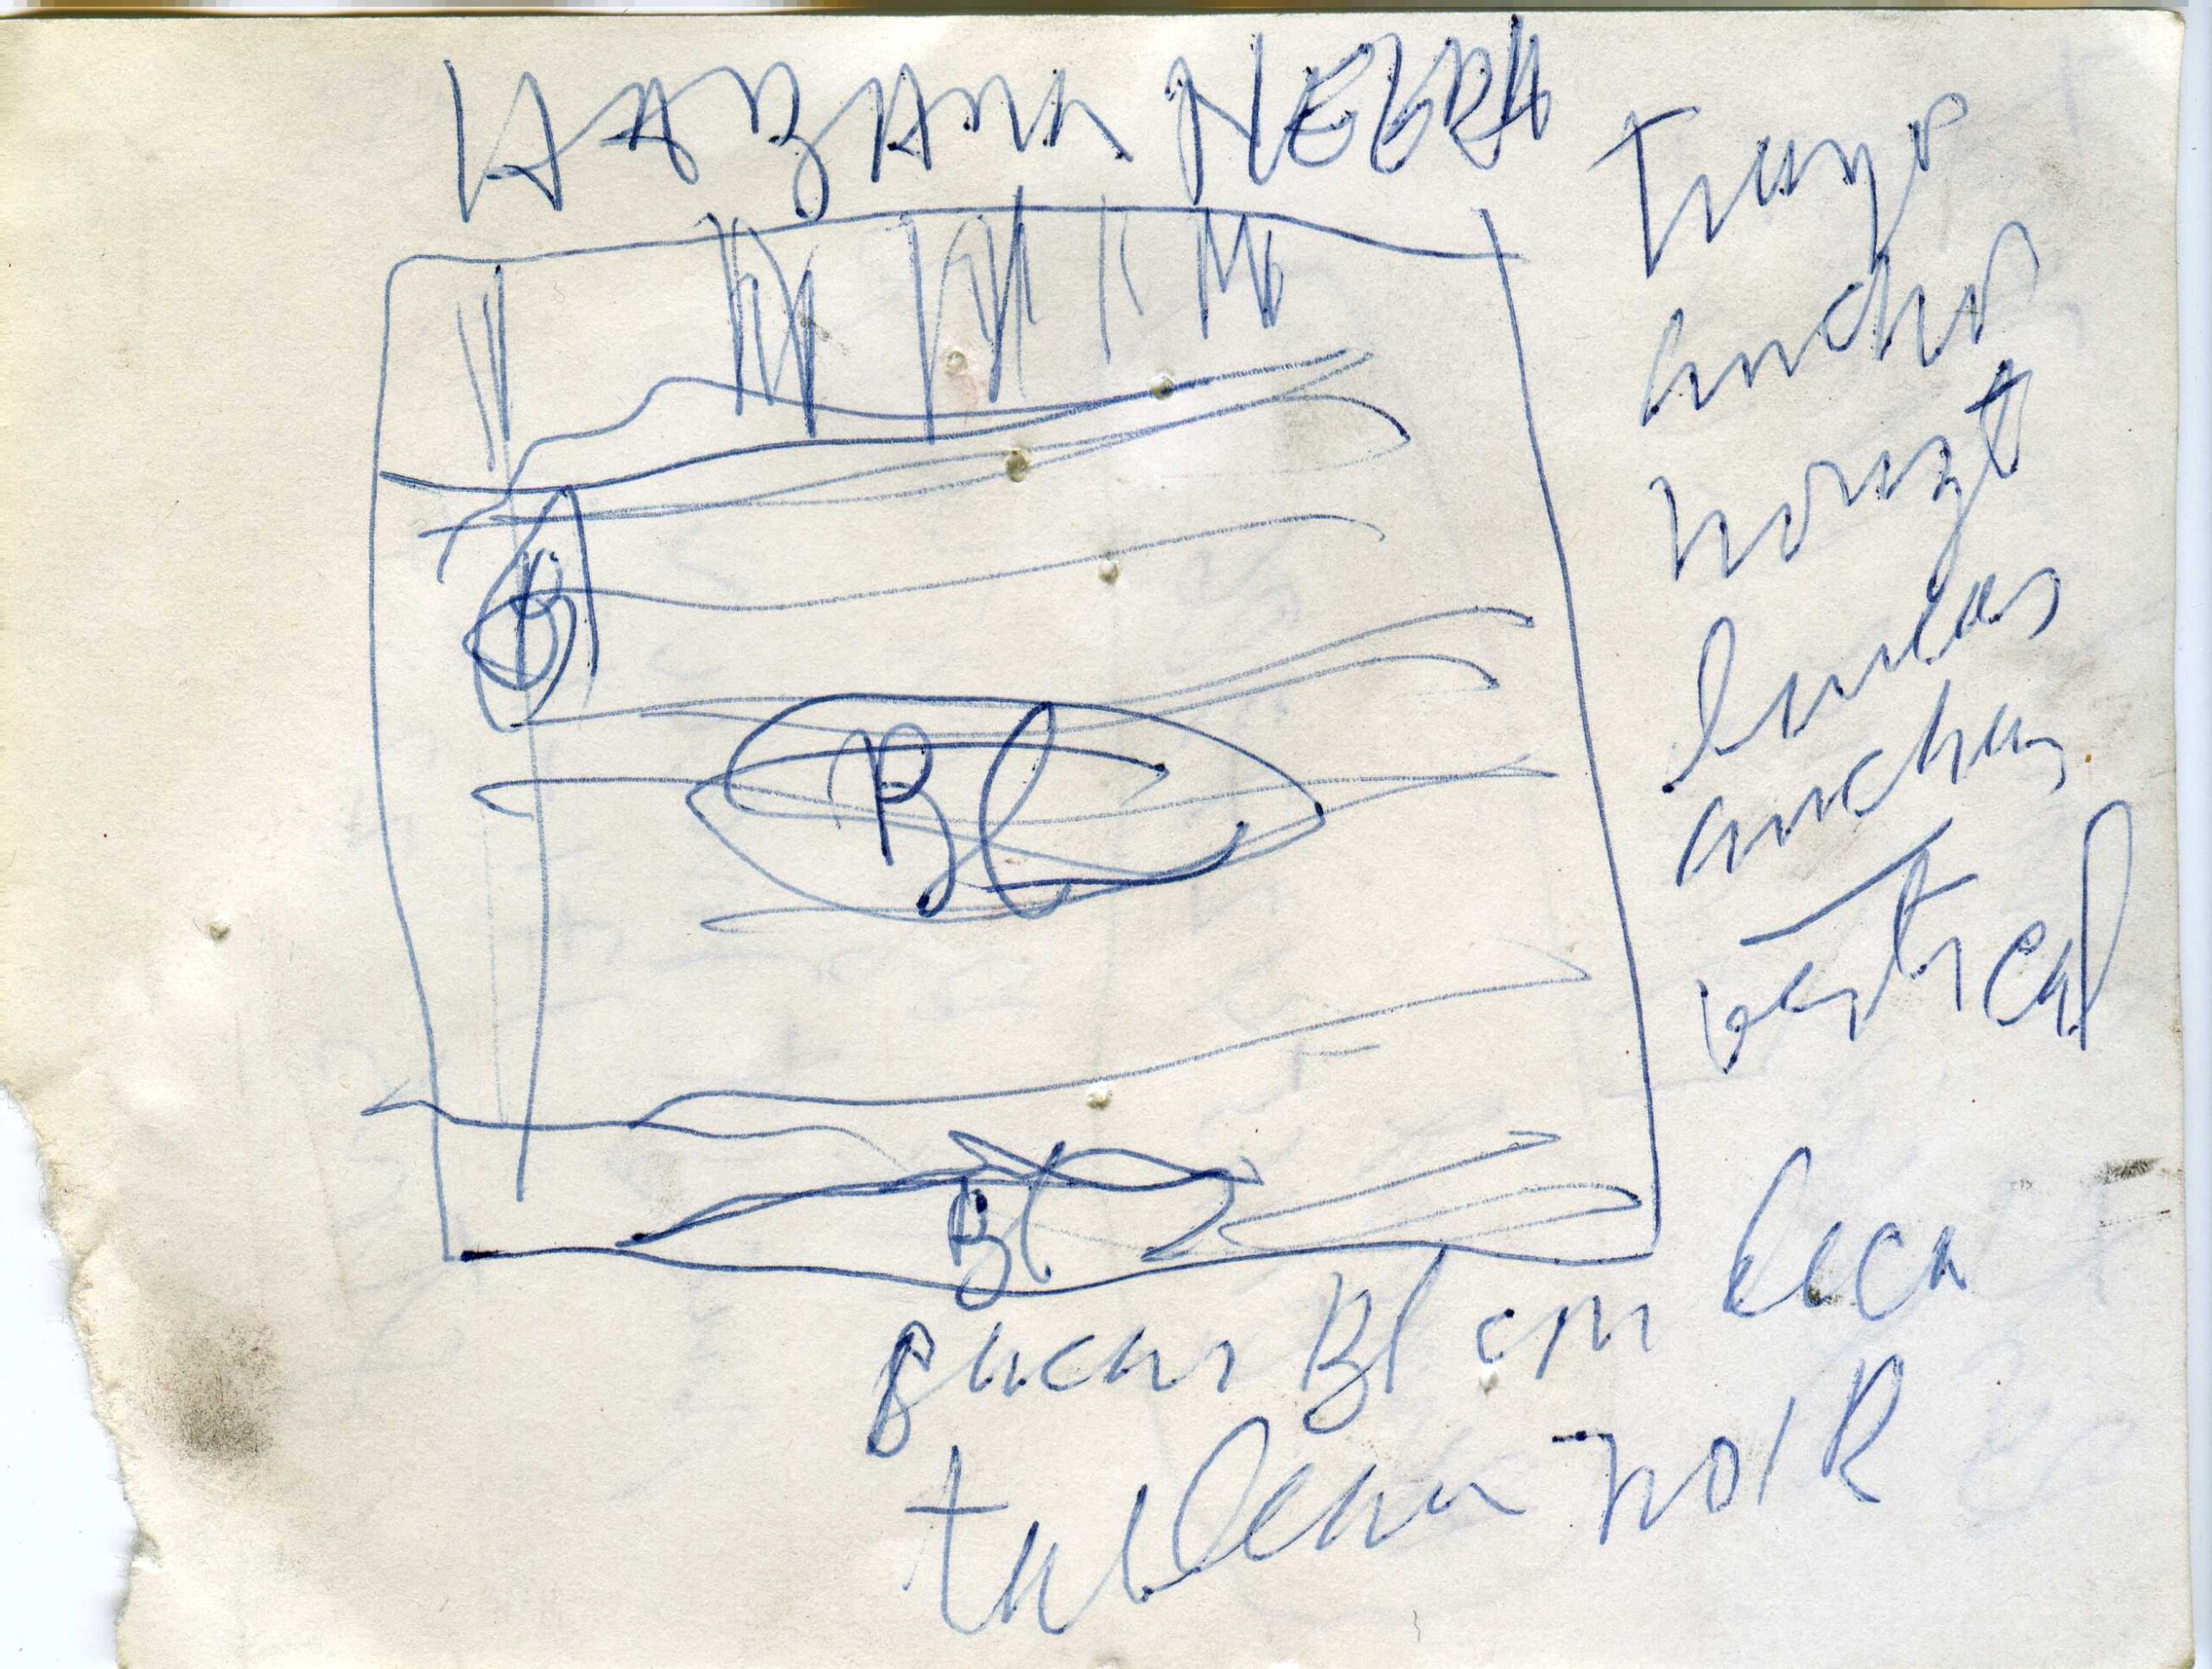 HABANA NEGRA
Trazo
ancho
horizt
lineas
anchas
vertical
B
Bl
Bl
sacar Bl con
tableau noir